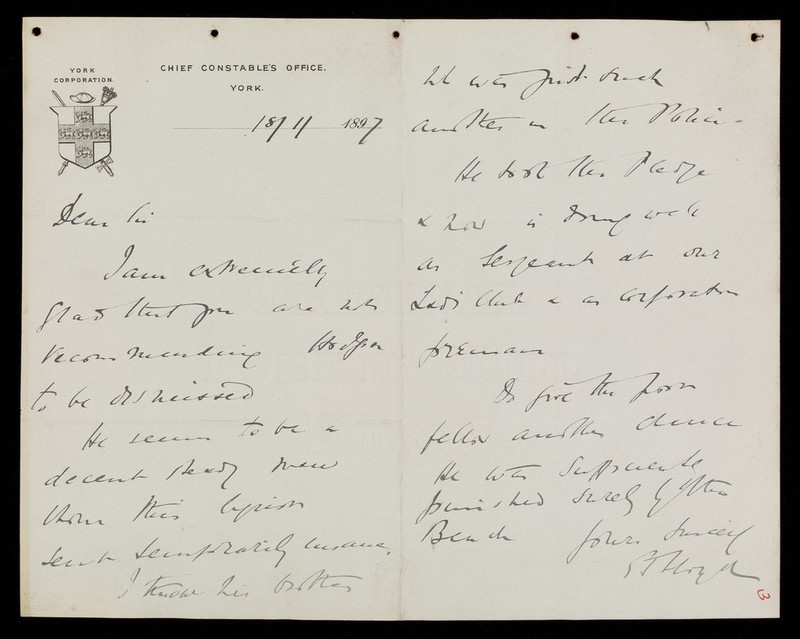 YORK
CORPORATION.
CHIEF CONSTABLE'S OFFICE.
YORK.
18/11 1897
Dear Sir
I am extremely
glad that you are not
recommending Hodgson
to be dismissed
He seems to be a
decent steady man
whom this
sent temporarily insane.
I know his brother
He was just such
another in the Police -
He took the Pledge
& now is doing well
as Sergeant at our
Lads Club & as Corporation
foreman
Do give the poor
fellow another chance
He was sufficiently
punished surely by the
Bench yours
3